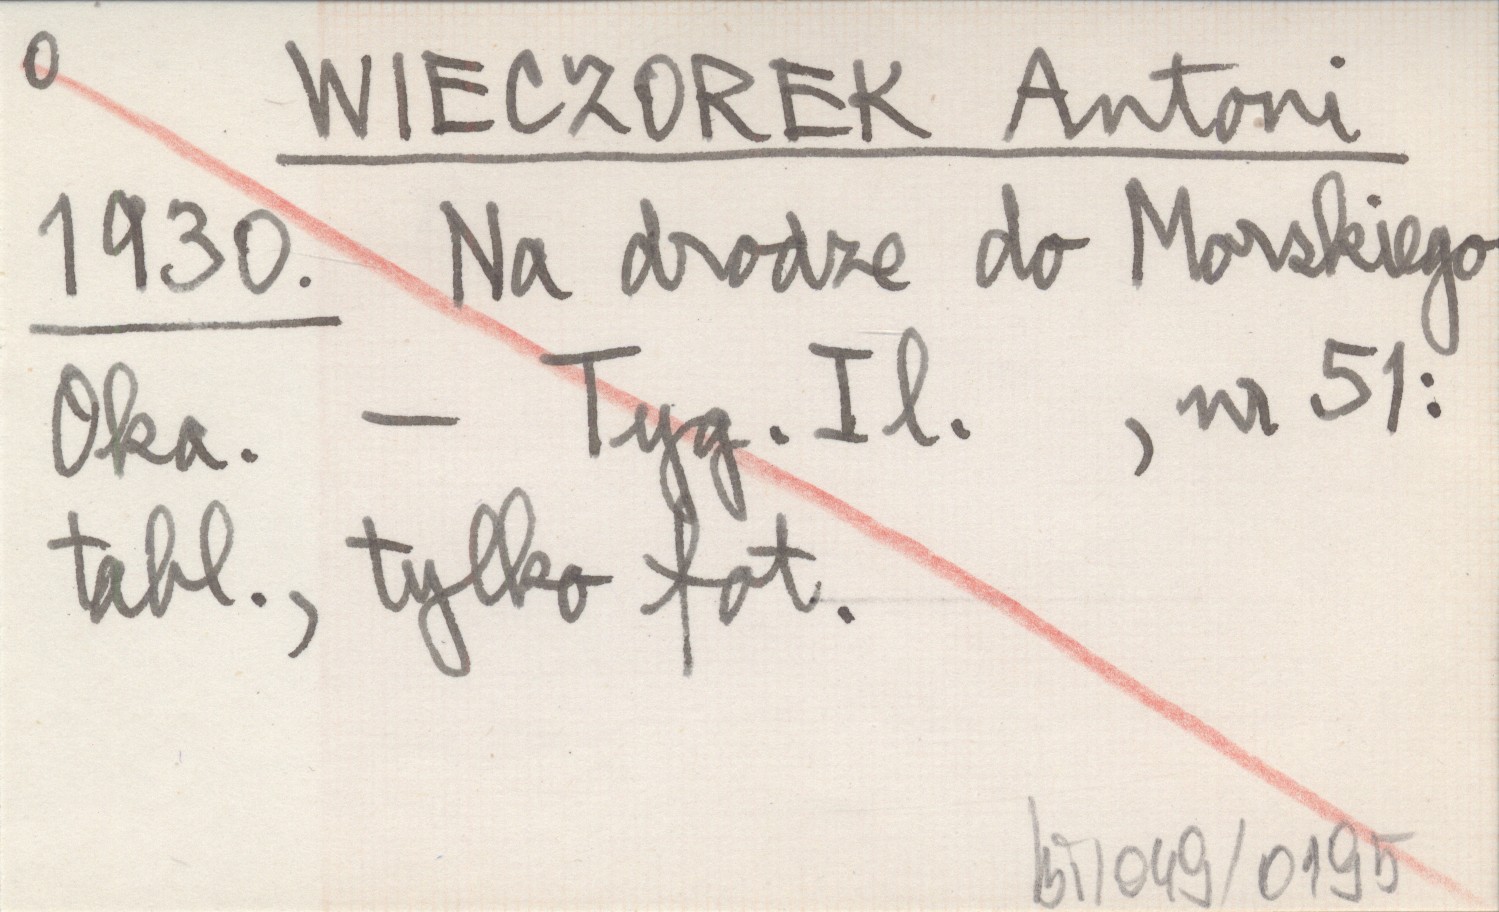 0
WIECZOREK Antoni
1930. Na drodze do Morskiego
Oka. — Tyg. Il. , nr 51:
tabl., tylko fot.
049/0195